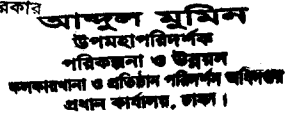 রকার
আব্দুল মুমিন
উপমহাপরিদর্শক
পরিকল্পনা ও উন্নয়ন
কলকারখানা ও প্রতিষ্ঠান পরিদর্শন অধিদপ্তর
প্রধান কার্যালয়, ঢাকা।